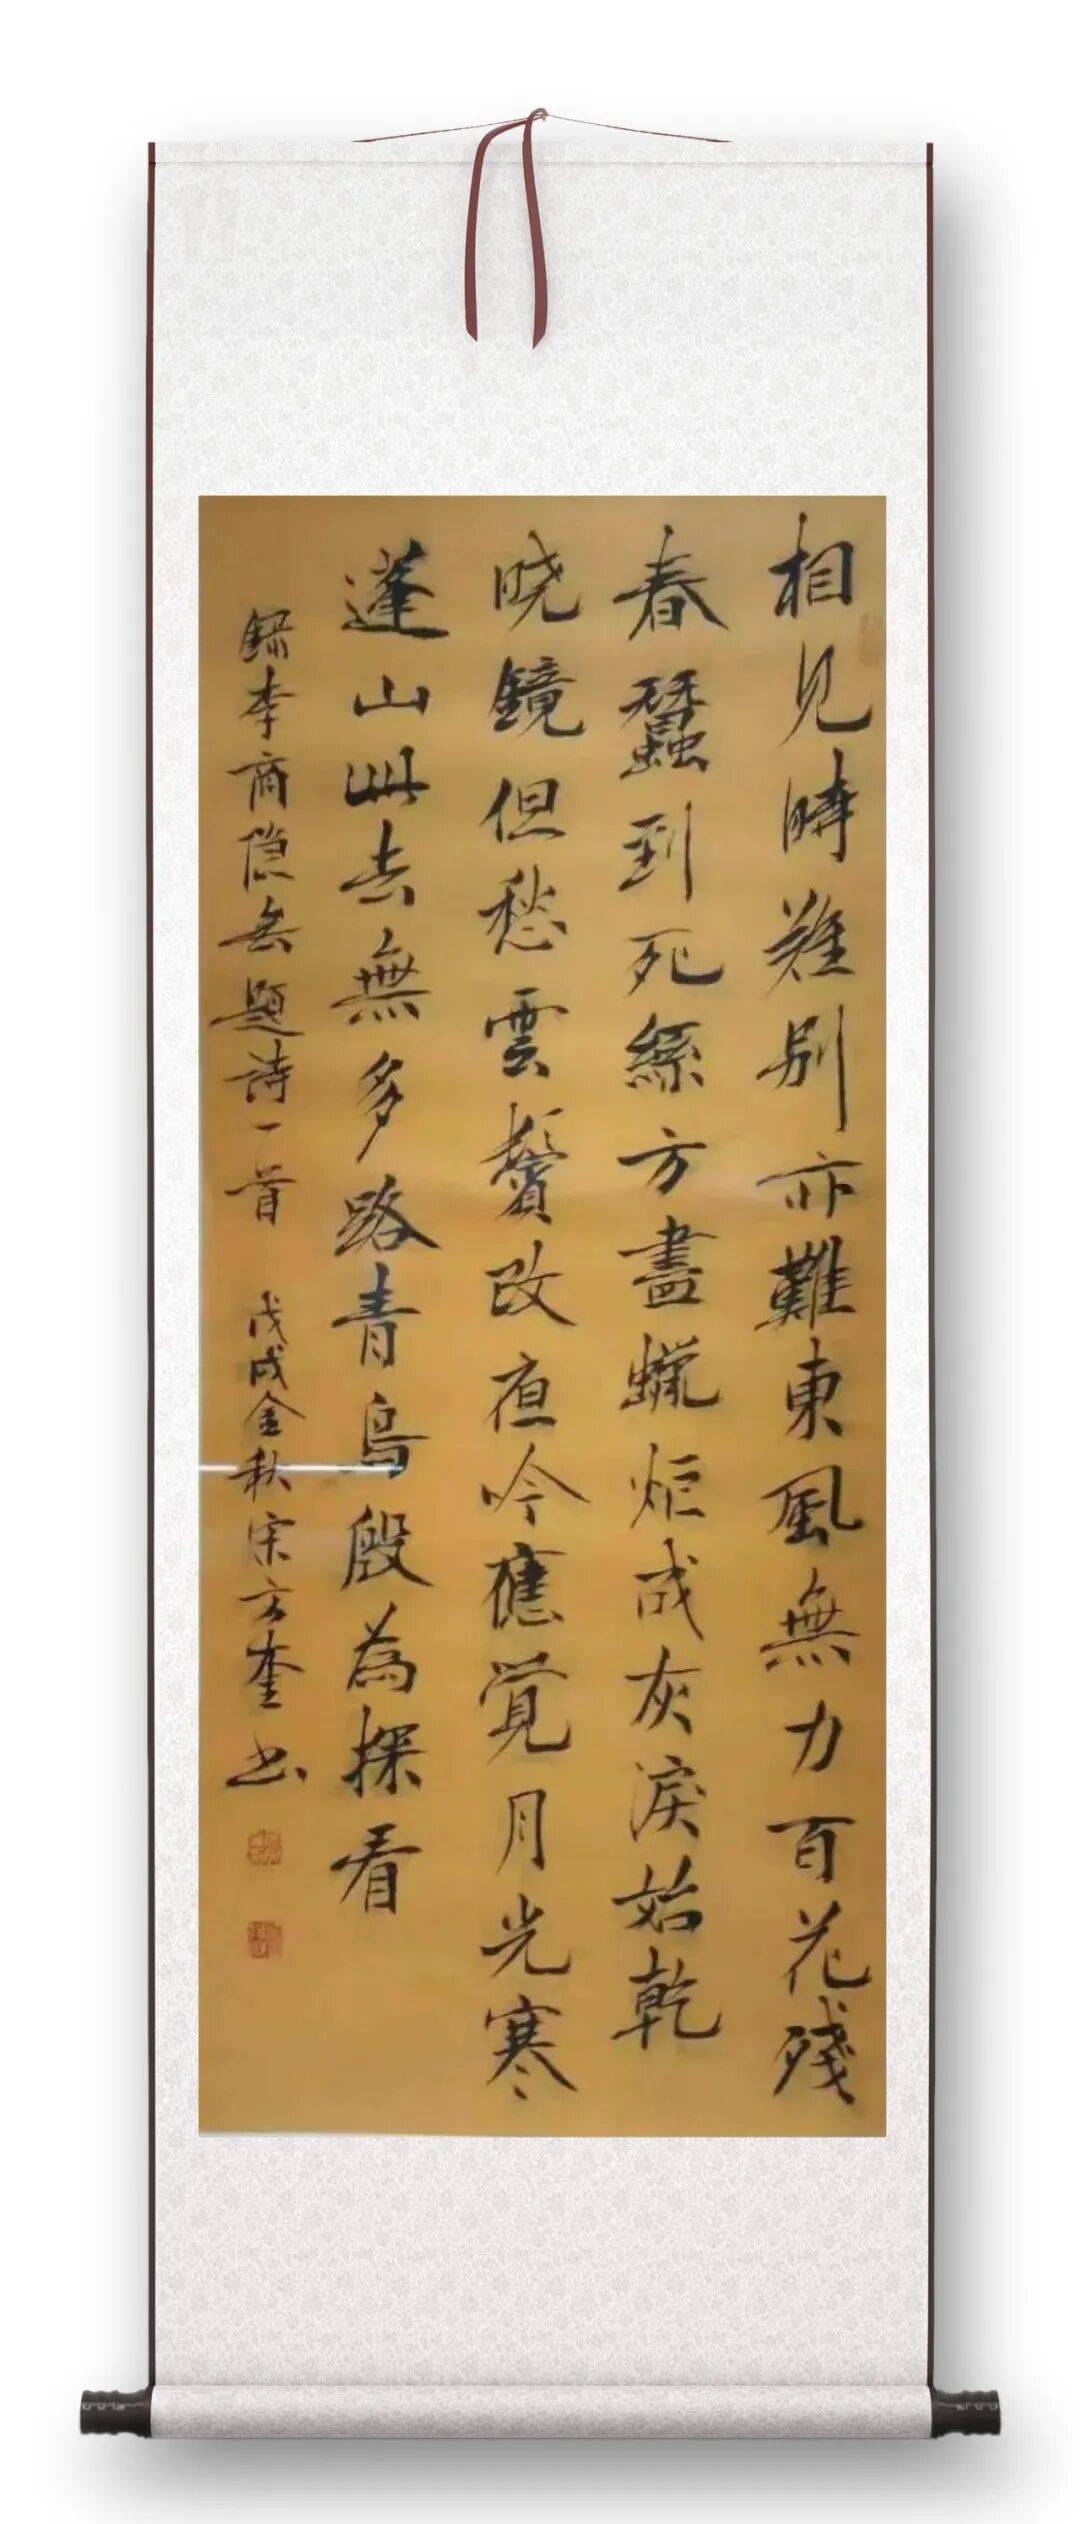 相见時難别亦難東風無力百花殘
春蠶到死絲方盡蠟炬成灰淚始乾
晓鏡但愁雲鬢改夜吟應覚月光寒
蓬山此去無多路青鳥殷為探看
録李商隐無题詩一首 戊戌金秋宋方奎书